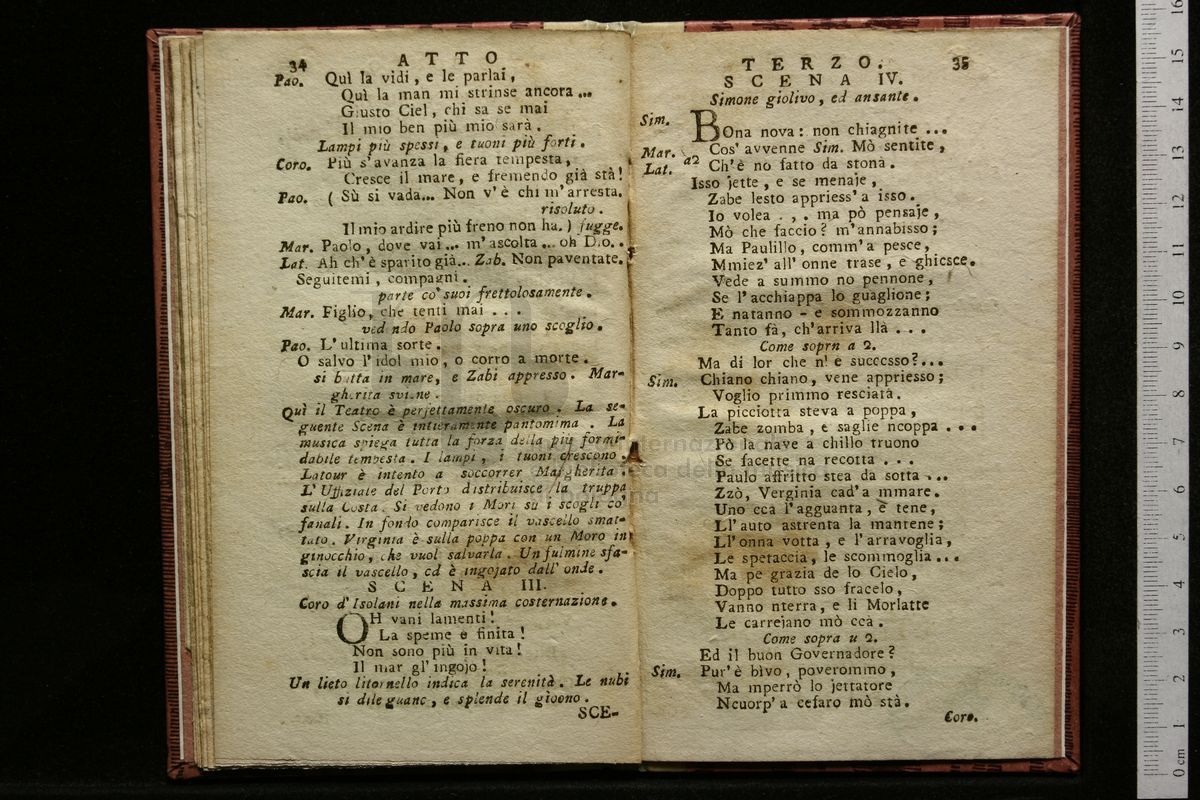 34 ATTO
Pao. Quì la vidi, e le parlai,
Quì la man mi strinse ancora...
Giusto Ciel, chi sa se mai
Il mio ben più mio sarà.
Lampi più spessi, e tuoni più forti.
Coro. Più s'avanza la fiera tempesta,
Cresce il mare, e fremendo già stà!
Pao. (Sù si vada... Non v'è chi m'arresta.
risoluto.
Il mio ardire più freno non ha.) fugge.
Mar. Paolo, dove vai... m'ascolta... oh Dio..
Lat. Ah ch'è sparito già... Zab. Non paventate.
Seguitemi, compagni.
parte co' suoi frettolosamente.
Mar. Figlio, che tenti mai ...
vedendo Paolo sopra uno scoglio.
Pao. L'ultima sorte.
O salvo l'idol mio, o corro a morte.
si butta in mare, e Zabi appresso. Mar-
gherita sviene.
Quì il Teatro è perfettamente oscuro. La se-
guente Scena è intieramente pantomima. La
musica spiega tutta la forza della più formi-
dabile tempesta. I lampi, i tuoni crescono.
Latour è intento a soccorrer Margherita.
L'Uffiziale del Porto distribuisce la truppa
sulla Costa. Si vedono i Mori su i scogli co'
fanali. In fondo comparisce il vascello smat-
tato. Virginia è sulla poppa con un Moro in
ginocchio, che vuol salvarla. Un fulmine sfa-
scia il vascello, ed è ingojato dall'onde.
SCENA III.
Coro d'Isolani nella massima costernazione.
OH vani lamenti!
La speme è finita!
Non sono più in vita!
Il mar gl'ingojo!
Un lieto litornello indica la serenità. Le nubi
si dileguano, e splende il giorno.
SCE-
TERZO. 35
SCENA IV.
Simone giolivo, ed ansante.
Sim. BOna nova: non chiagnite ...
Mar. Lat. a2 Cos' avvenne Sim. Mò sentite,
Ch'è no fatto da stonà.
Isso jette, e se menaje,
Zabe lesto appriess'a isso.
Io volea ... ma pò pensaje,
Mò che faccio? m'annabisso;
Ma Paulillo, comm'a pesce,
Mmiez' all' onne trase, e ghiesce.
Vede a summo no pennone,
Se l'acchiappa lo guaglione;
E natanno - e sommozzanno
Tanto fà, ch'arriva llà ...
Come soprn a 2.
Ma di lor che n'è successo?...
Sim. Chiano chiano, vene appriesso;
Voglio primmo resciatà.
La picciotta steva a poppa,
Zabe zomba, e saglie ncoppa ...
Pò la nave a chillo truono
Se facette na recotta ...
Paulo affritto stea da sotta ...
Zzò, Verginia cad'a mmare.
Uno cca l'agguanta, e tene,
Ll'auto astrenta la mantene;
Ll'onna votta, e l'arravoglia,
Le spetaccia, le scommoglia...
Ma pe grazia de lo Cielo,
Doppo tutto sso fracelo,
Vanno nterra, e li Morlatte
Le carrejano mò ccà.
Come sopra u 2.
Ed il buon Governadore?
Sim. Pur'è bìvo, poverommo,
Ma mperrò lo jettatore
Ncuorp'a cefaro mò stà.
Coro.